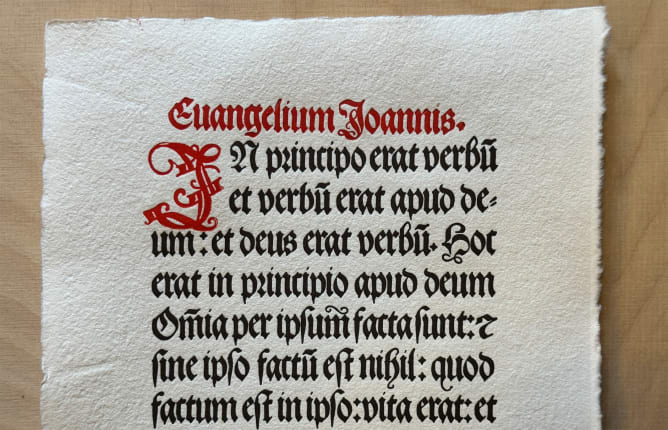 Euangelium Joannis.
IN principo erat verbū
et verbū erat apud de⸗
um: et deus erat verbū. Hoc
erat in principio apud deum
Om̄ia per ipsum̄ facta sunt: ⁊
ſine ipſo factū eſt nihil: quod
factum eſt in ipſo: vita erat: et